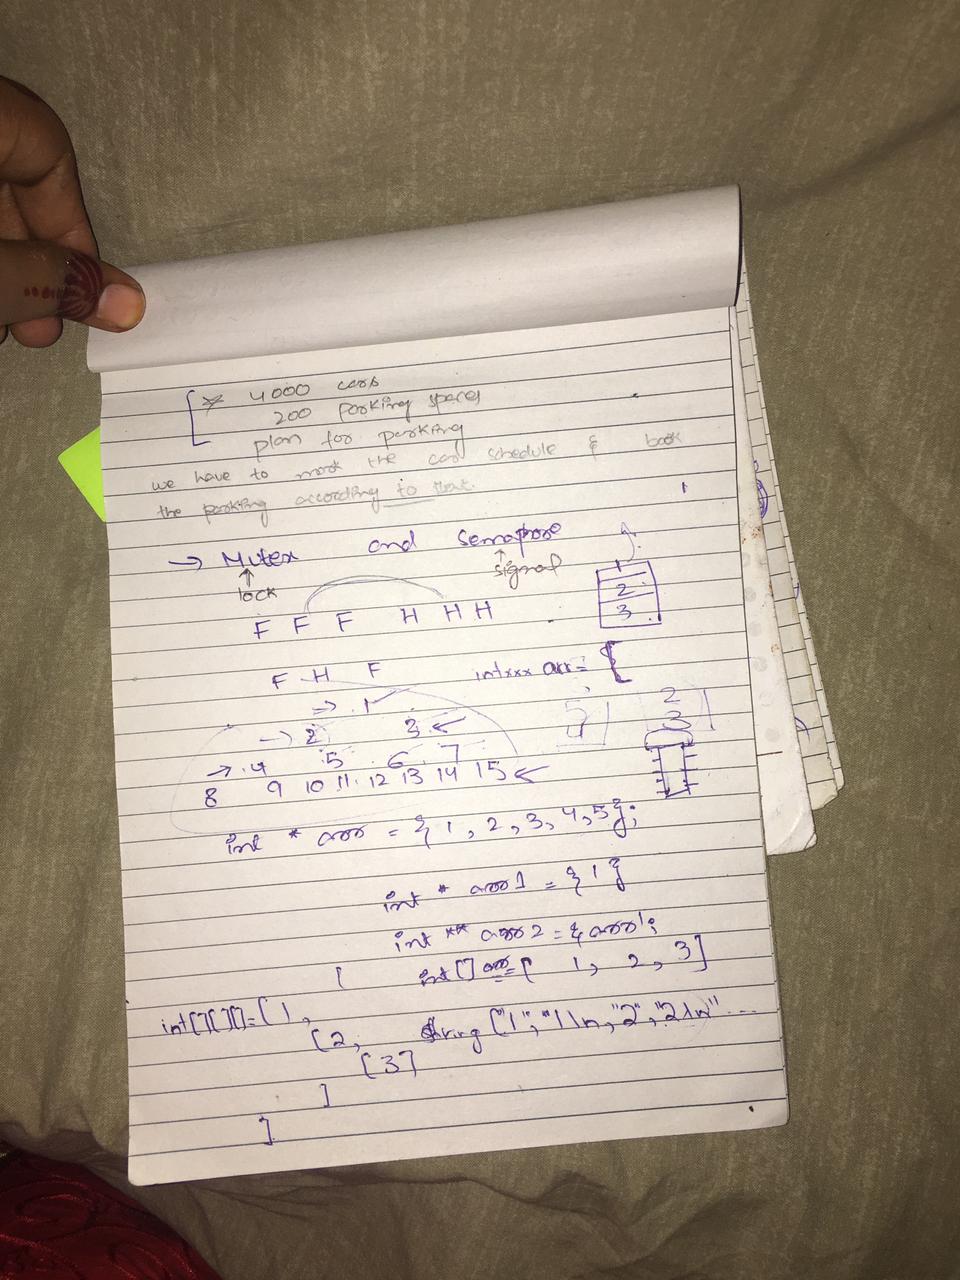 * 4000 cars
200 parking spaces
plan for parking
we have to mark the car schedule & book
the parking according to that.
→ Mutex and Semaphore
lock signal
1
2
3
F F F H H H
F H F
int*** arr = {
→ 1
→ 2 3 ←
2
3
→ 4 5 6 7
8 9 10 11 12 13 14 15 ←
int * arr = { 1, 2, 3, 4, 5};
int * arr1 = { 1 }
int ** arr2 = { arr1;
int[] arr = [ 1, 2, 3]
int[][][] = [ 1,
[ 2, string ["1", "1\n, "2", "2\n" ...
[ 3]
]
]